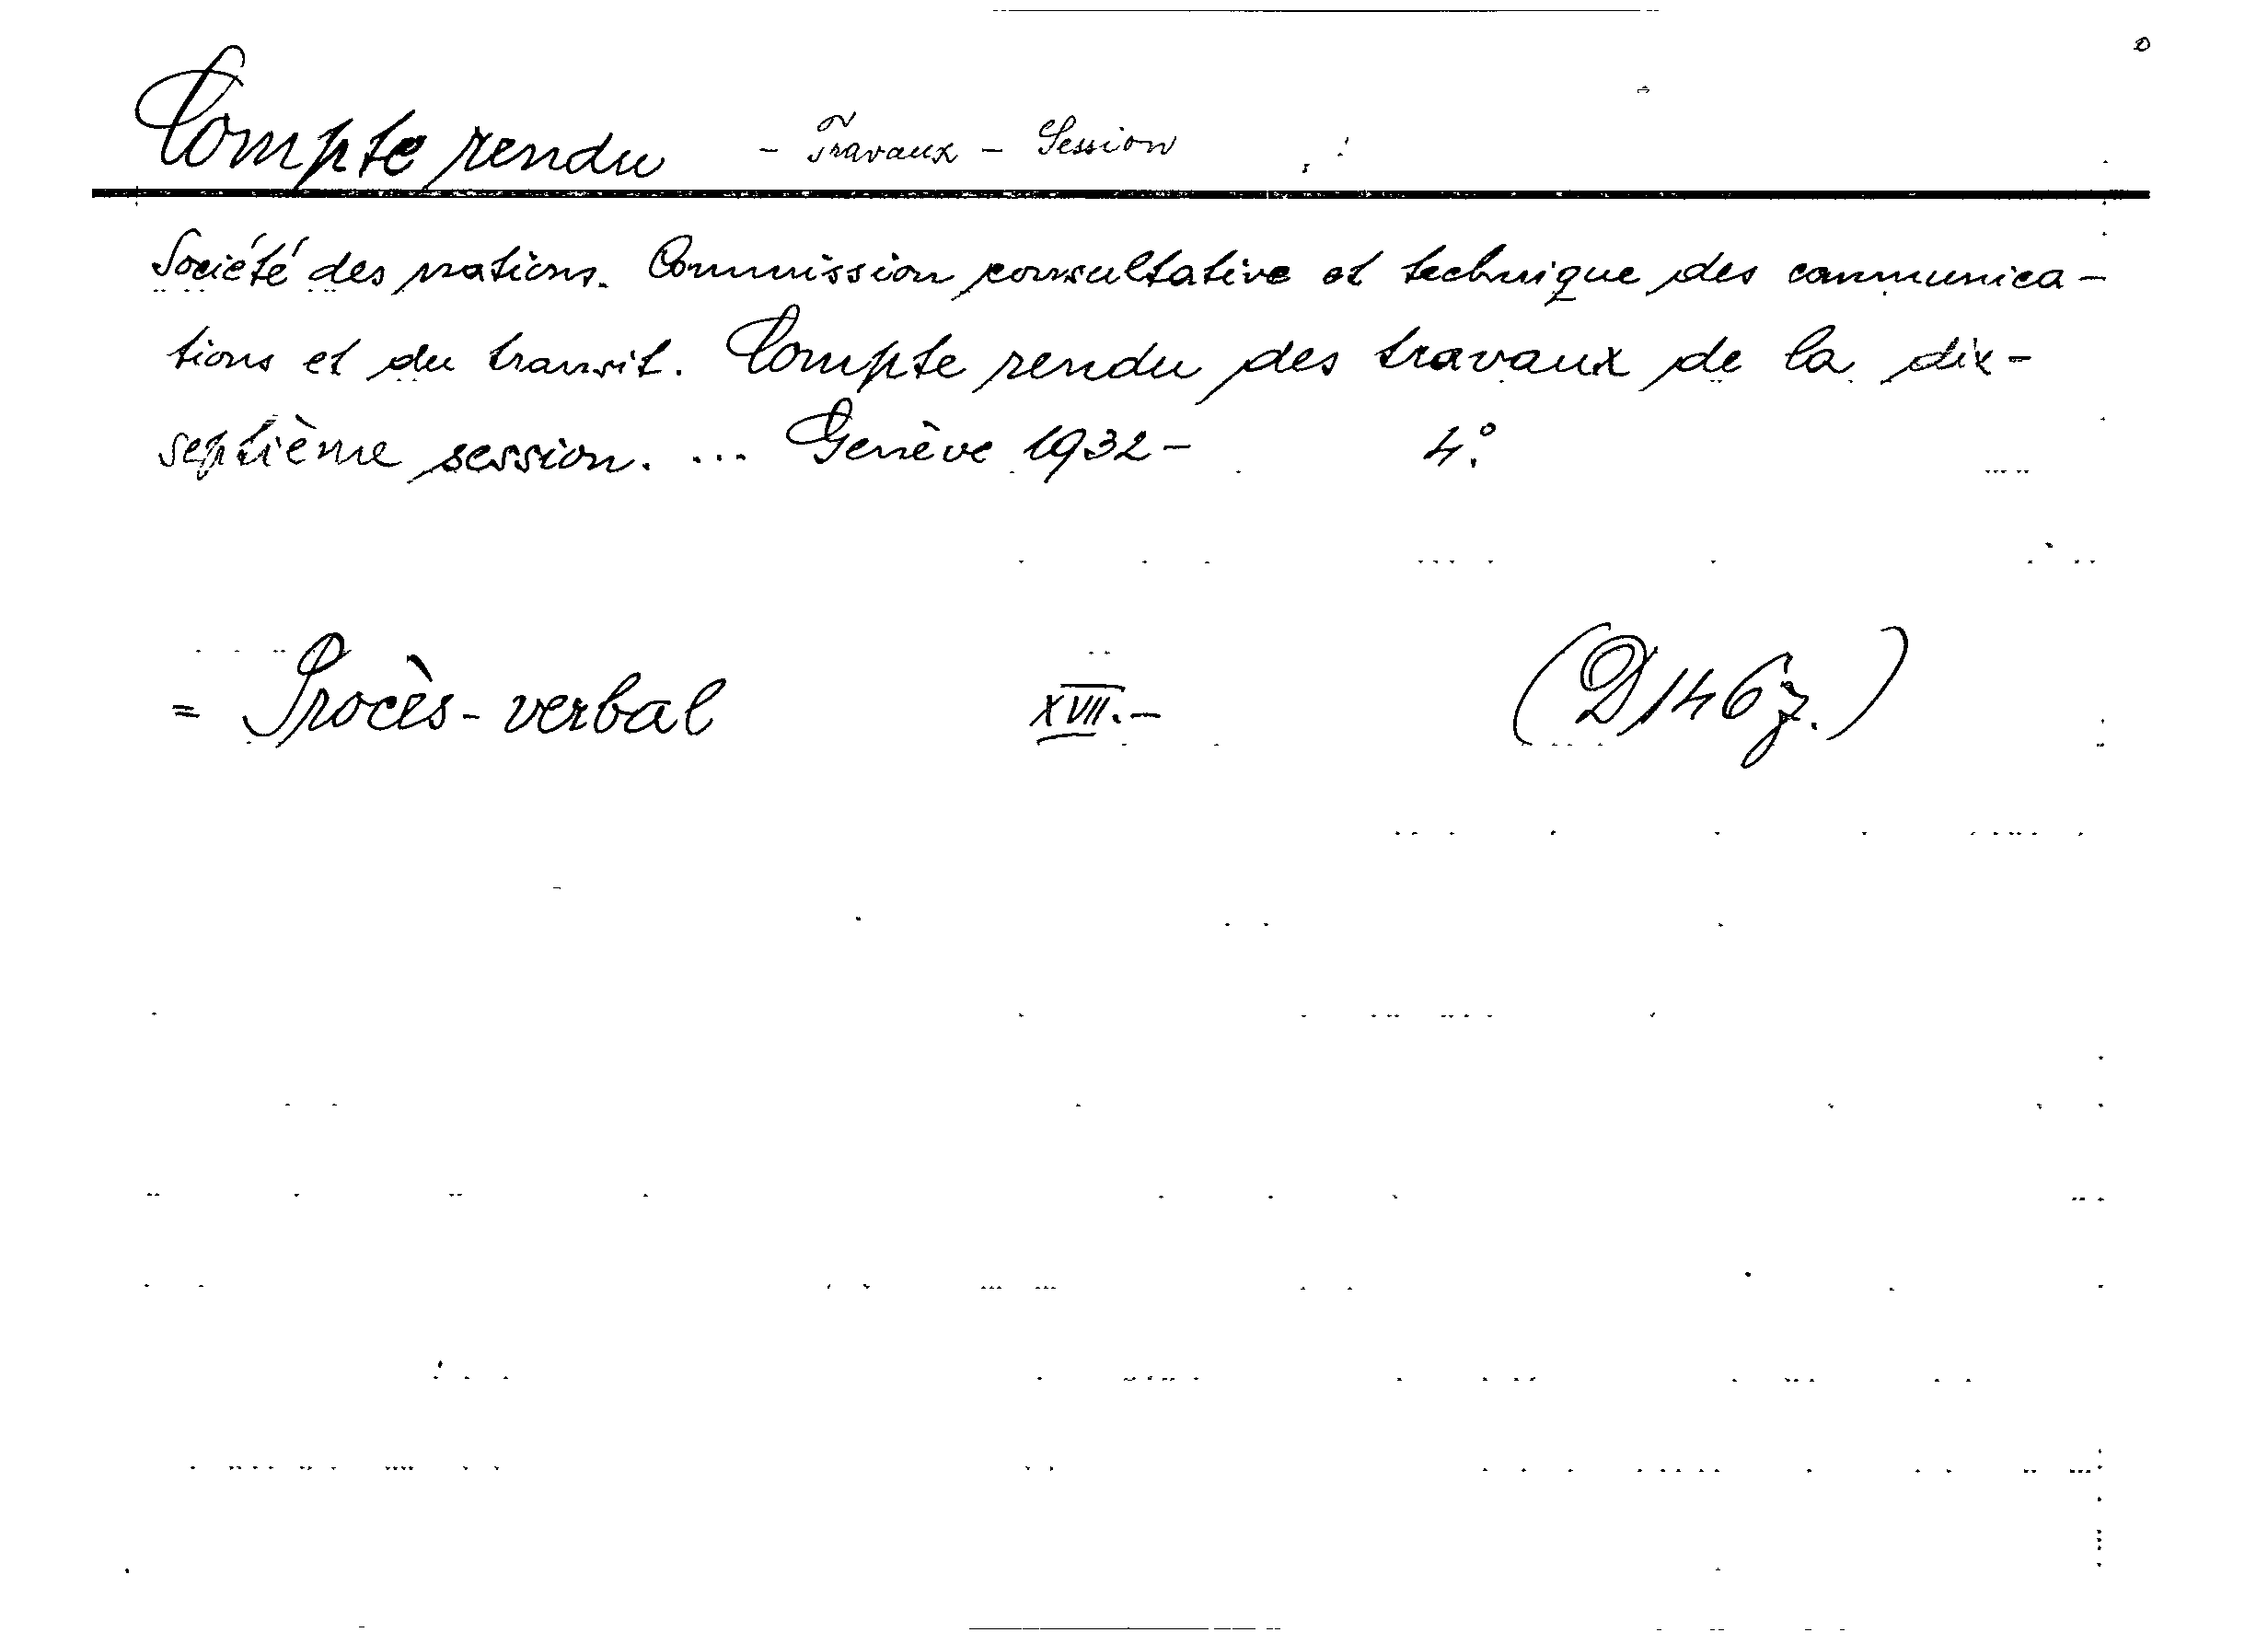 Compte rendu - Travaux - Session
Société des nations. Commission consultative et technique des communica-
tions et du transit. Compte rendu des travaux de la dix-
septième session. ... Genève 1932- 4:o
= Procès-verbal XVII.- (D146z.)